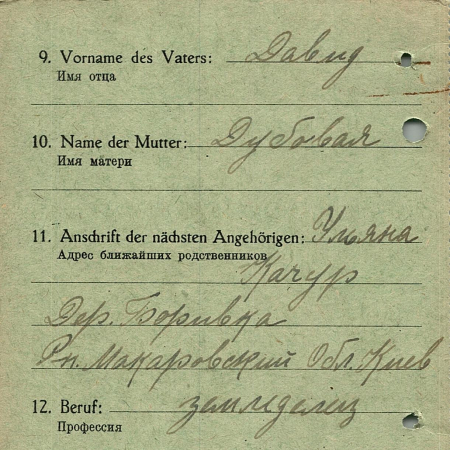 9. Vorname des Vaters: Давид
Имя отца
10. Name der Mutter: Дубовая
Имя матери
11. Anschrift der nächsten Angehörigen: Ульяна
Адрес ближайших родственников
Качур
Дер. Боривка
Рн. Макаровский Обл. Киев
12. Beruf: земледелез
Профессия